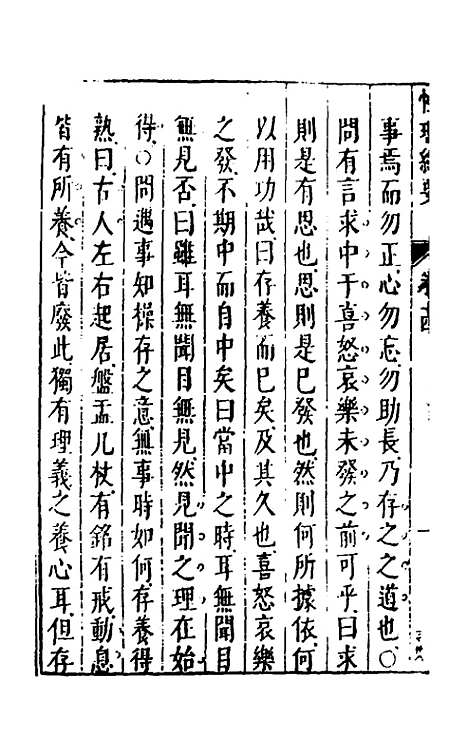 性理綜要
卷十四
事焉而勿正心勿忘勿助長乃存之之道也〇
問有言求中于喜怒哀樂未發之前可乎曰求
則是有思也思則是已發也然則何所據依何
以用功哉曰存養而已矣及其久也喜怒哀樂
之發不期中而自中矣曰當中之時耳無聞目
無見否曰雖耳無聞目無見然見聞之理在始
得〇問遇事知操存之意無事時如何存養得
熟曰古人左右起居盤盂几杖有銘有戒動息
皆有所養今皆廢此獨有理義之養心耳但存